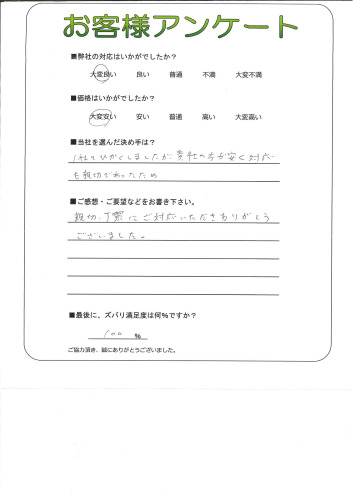 お客様アンケート
■弊社の対応はいかがでしたか?
大変良い 良い 普通 不満 大変不満
■価格はいかがでしたか?
大変安い 安い 普通 高い 大変高い
■当社を選んだ決め手は?
1社でひかくしましたが、貴社の方が安く対応
も親切であったため
■ご感想・ご要望などをお書き下さい。
親切、丁寧にご対応いただきありがとう
ございました。
■最後に、ズバリ満足度は何%ですか?
100 %
ご協力頂き、誠にありがとうございました。